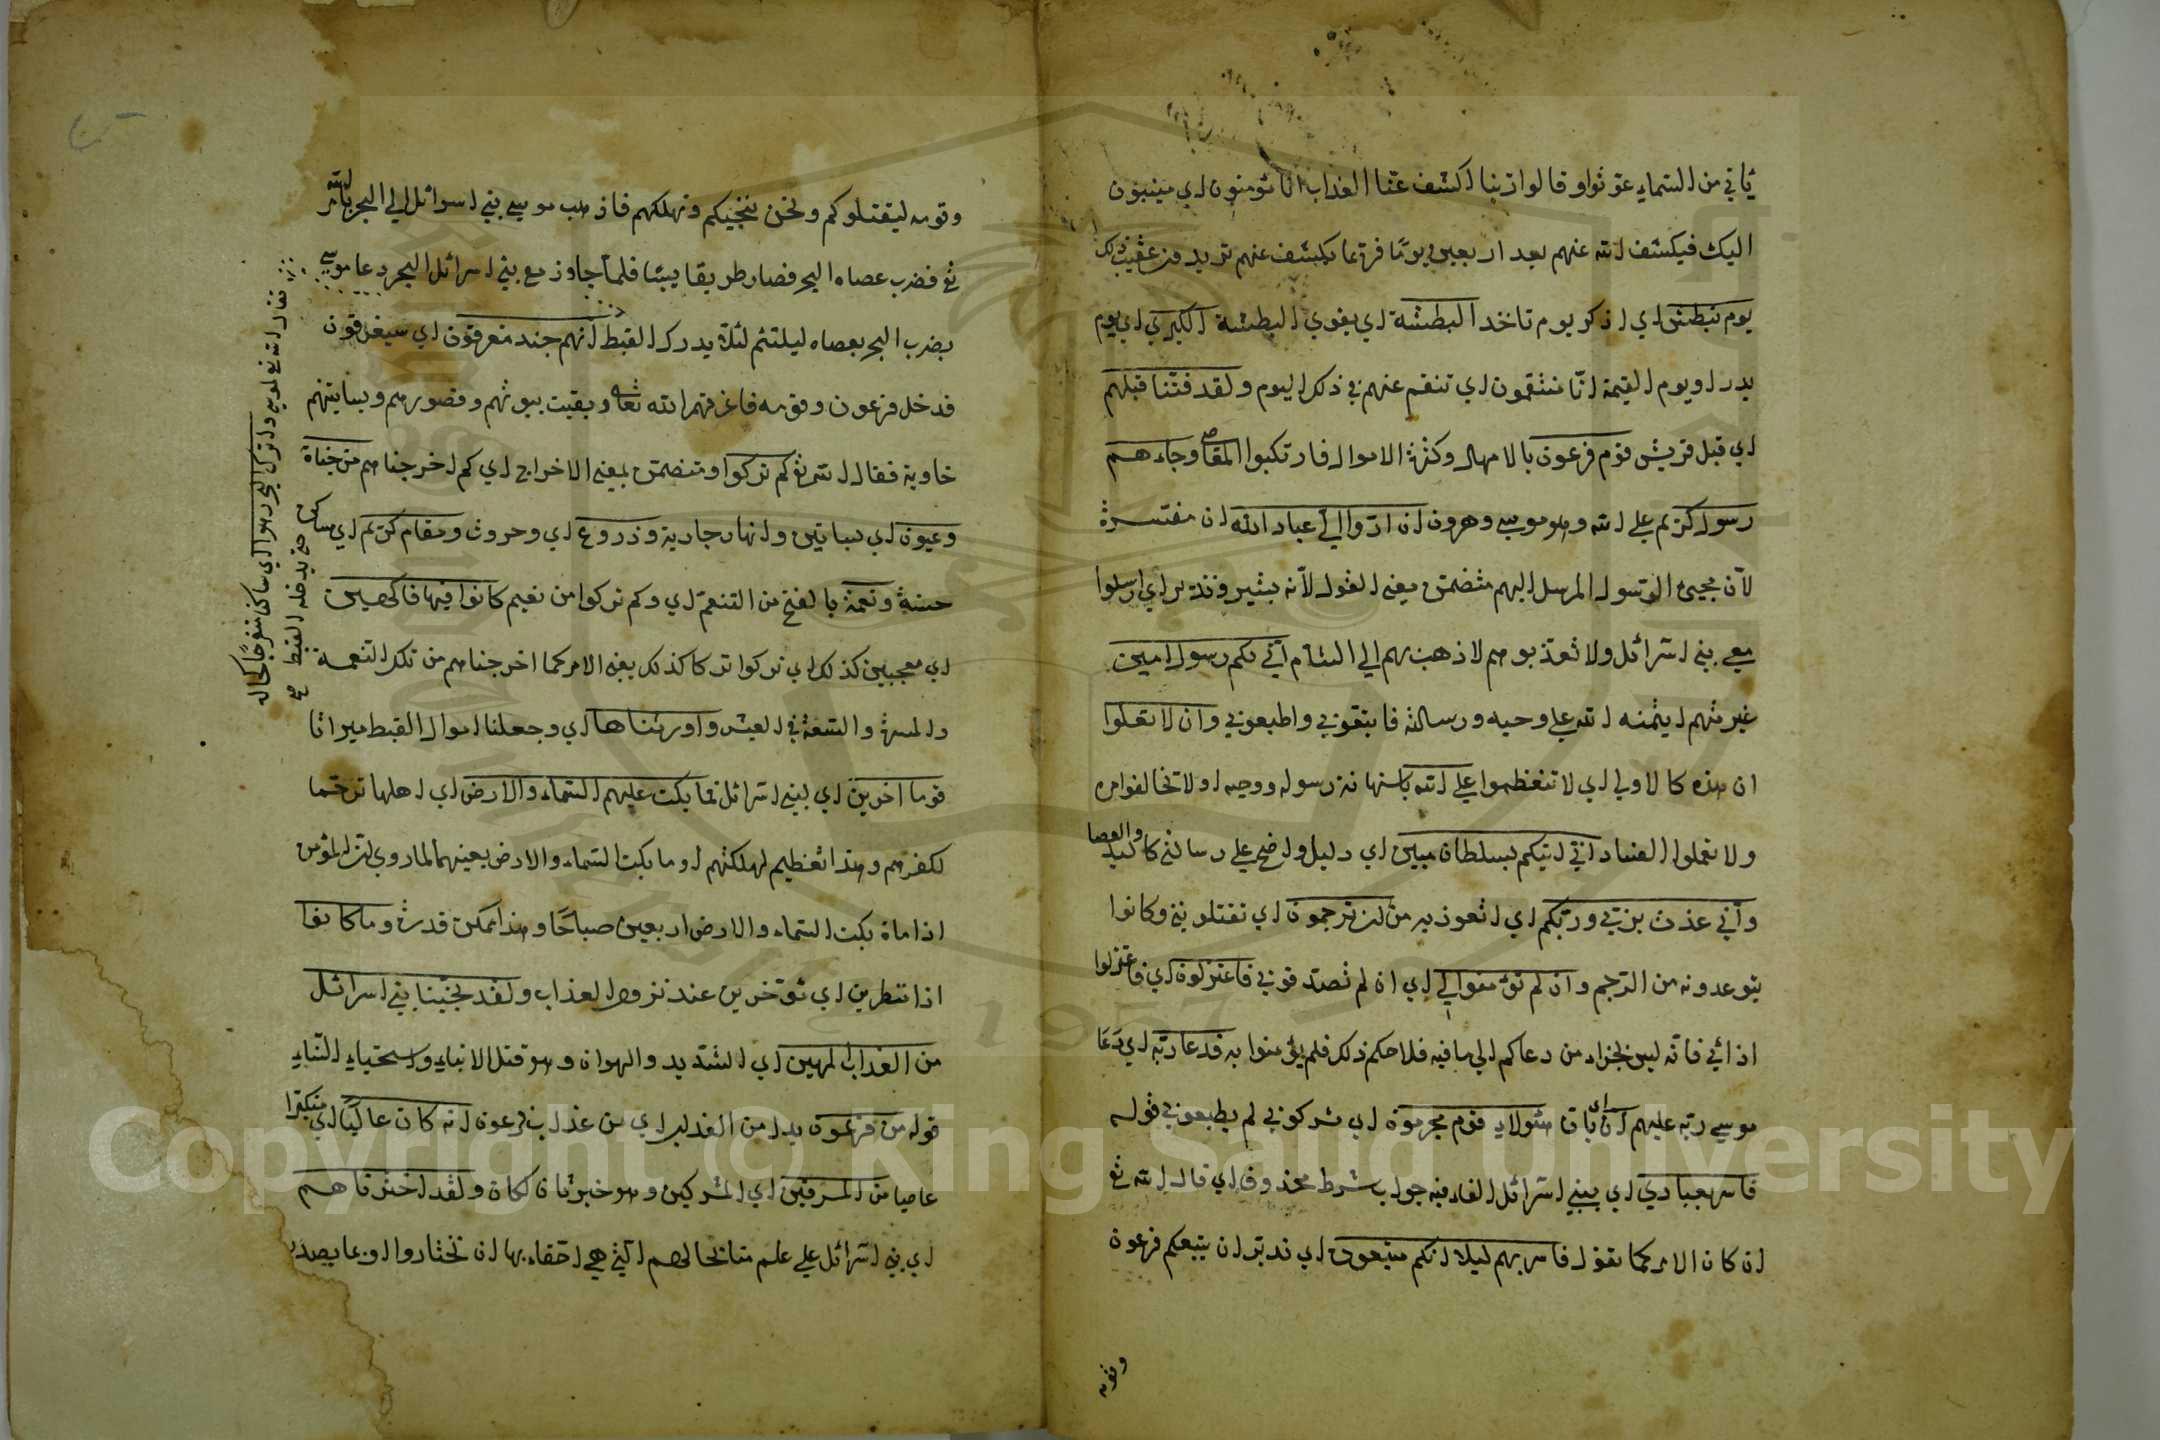 ياتي من السماء غوثوا وقالوا ربنا اكشف عنا العذاب انا مؤمنون اي منيبون
اليك فيكشف الله عنهم بعد اربعين يوما فرتما يكشف عنهم تريد من عقيب ذلك
يوم نبطش اي اذكر يوم ناخذ البطشة اي بقوي البطشة الكبري اي يوم
بدر او يوم القيمة انا منتقمون اي ننتقم عنهم في ذلك اليوم ولقد فتنا قبلهم
اي قبل قريش قوم فرعون بالامهال وكثرة الاموال فارتكبوا المعاصي وجاءهم
رسول كريم علي الله وهو موسي وهرون ان ادوا الي عباد الله ان مفسرة
لان مجيئ الرسول المرسل اليهم متضمن معني القول لانه بشير ونذير اي ارسلوا
معي بني اسرائل ولا تعذبوهم لاذهب بهم الي الشام اني لكم رسول امين
غير متهم ايتمنه الله علي وحيه ورسالته فاتقوني واطيعوني وان لا تعلوا
ان هذه كالاولي اي لا تتعظموا علي الله باستهانة رسوله ووحيه او لا تخالفوا امره
ولا تعملوا الفساد اني اتيكم بسلطان مبين اي دليل واضح علي رسالتي كاليد والعصا
واني عذت بربي وربكم اي اتعوذ به من ان ترجمون اي تقتلونني وكانوا
يتوعدونه من الرجم وان لم تؤمنوا لي اي ان لم تصدقوني فاعتزلون اي فاعتزلوا
اذائي فانه ليس بجزاء من دعاكم الي ما فيه فلاحكم ذلك فلم يؤمنوا به فدعا ربه اي دعا
موسي ربه عليهم ان اي بان هؤلاء قوم مجرمون اي شركوني لم يطيعوني قوله
فاسر بعبادي اي ببني اسرائل الفاء فيه جواب شرط محذوف اي قال الله تع
ان كان الامر كما تقول فاسر بهم ليلا انكم متبعون اي ندبر ان يتبعكم فرعون
وقومه
وقومه ليقتلوكم ونحن ننجيكم ونهلكهم فاذهب موسي بني اسرائل الي البحر بامر الله
تع فضرب عصاه البحر فصار طريقا يبسا فلما جاوز مع بني اسرائل البحر دعا موسي
بضرب البحر بعصاه ليلتئم لئلا يدرك القبط انهم جند مغرقون اي سيغرقون
فدخل فرعون وقومه فاغرقهم الله تعالي وبقيت بيوتهم وقصورهم وبساتينهم
خاوية فقال الله تع كم تركوا ومتضمن بمعني الاخراج اي كم اخرجناهم من جنات
وعيون اي بساتين وانهار جارية وزروع اي وحروث ومقام كريم اي مساكن
حسنة ونعمة بالفتح من التنعم اي وكم تركوا من نعيم كانوا فيها فاكهين
اي معجبين كذلك اي تركوا تركا كذلك يعني الامر كما اخرجناهم من تلك النعمة
والمسرة والسعة في العيش واورثناها اي وجعلنا اموال القبط ميراثا
قوما اخرين اي لبني اسرائل فما بكت عليهم السماء والارض اي اهلها ترحما
لكفرهم وهذا تعظيم لهلكتهم او ما بكت السماء والارض بعينهما لما روي ان المؤمن
اذا مات بكت السماء والارض اربعين صباحا وهذا ممكن قدرة وما كانوا
اذا منظرين اي مؤخرين عند نزول العذاب ولقد نجينا بني اسرائل
من العذاب المهين اي الشديد والهوان وهو قتل الابناء واستحياء النساء
قوله من فرعون بدل من العذاب اي من عذاب فرعون انه كان عاليا اي متكبرا
عاصيا من المسرفين اي المشركين وهو خبر ثان لكان ولقد اخترناهم
اي بني اسرائل علي علم منا بحالهم التي هي احقاء بها ان تختاروا او بما يصدر
فقال الله تع لموسي واترك البحر رهوا اي ساكنا منفرجا بحاله
حتي يدخله القبط صح